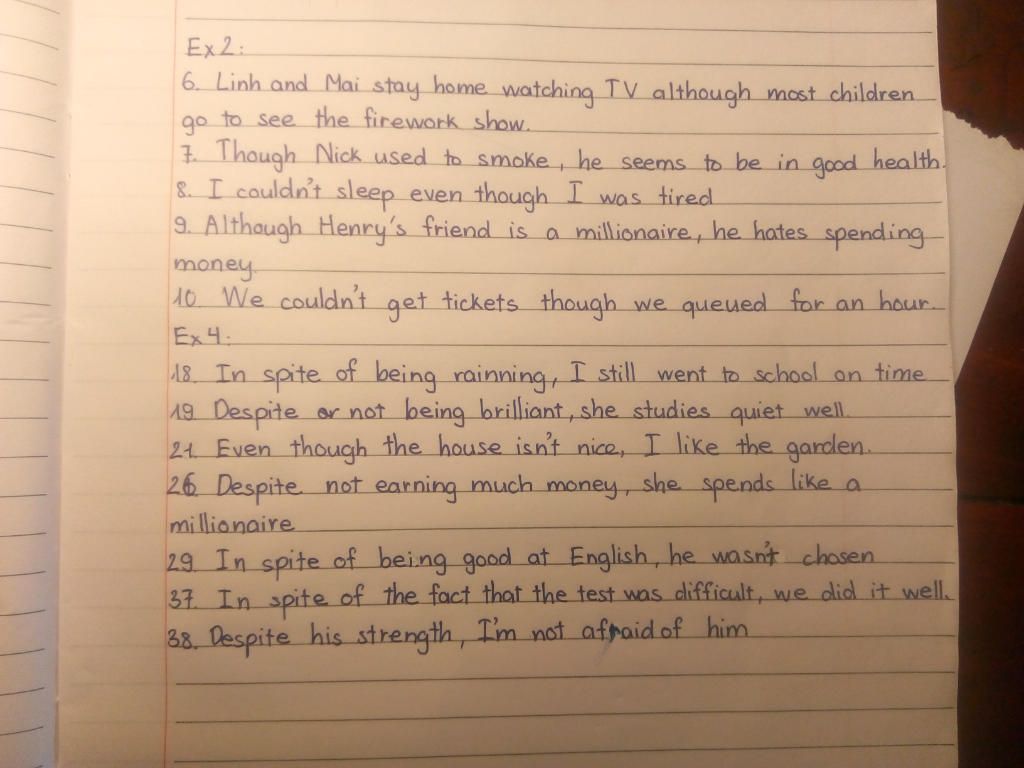 Ex 2:
6. Linh and Mai stay home watching TV although most children
go to see the firework show.
7. Though Nick used to smoke, he seems to be in good health.
8. I couldn't sleep even though I was tired
9. Although Henry's friend is a millionaire, he hates spending
money.
10. We couldn't get tickets though we queued for an hour.
Ex 4:
18. In spite of being rainning, I still went to school on time
19. Despite not being brilliant, she studies quiet well.
21. Even though the house isn't nice, I like the garden.
26. Despite not earning much money, she spends like a
millionaire
29. In spite of being good at English, he wasn't chosen
37. In spite of the fact that the test was difficult, we did it well.
38. Despite his strength, I'm not afraid of him